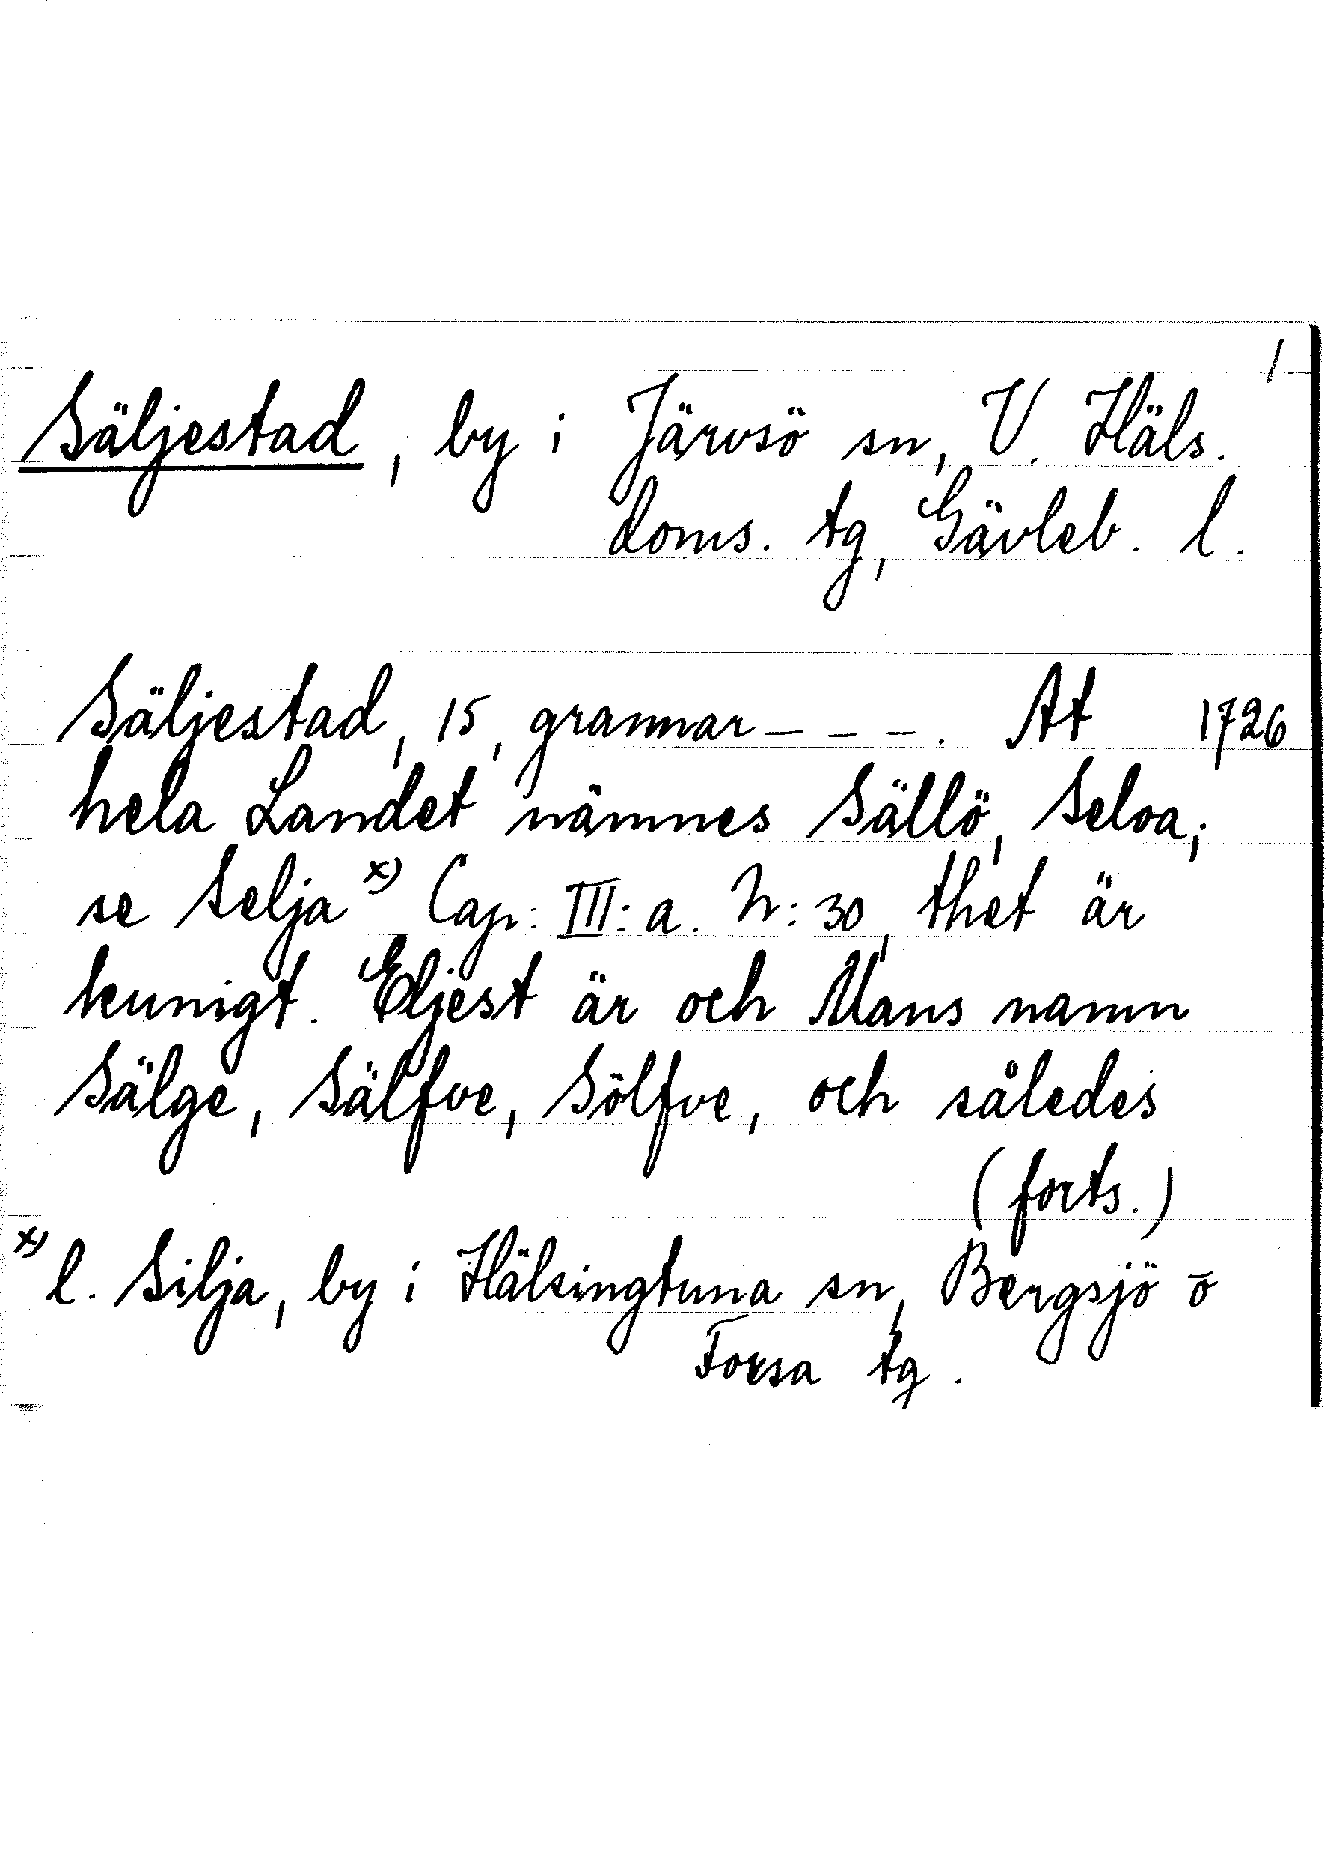 1
Säljestad, by i Järvsö sn, V. Häls.
doms. tg, Gävleb. l.
Säljestad, 15, grannar - - - . At 1726
hela Landet nämnes Sällö, Seloa,;
se Selja x) Cap: III: a. N: 30, thet är
kunigt. Eljest är och Mans namn
Sälge, Sälfve, Sölfve, och således
(forts.)
x) l. Silja, by i Hälsingtuna sn, Bergsjö o
Forsa tg.